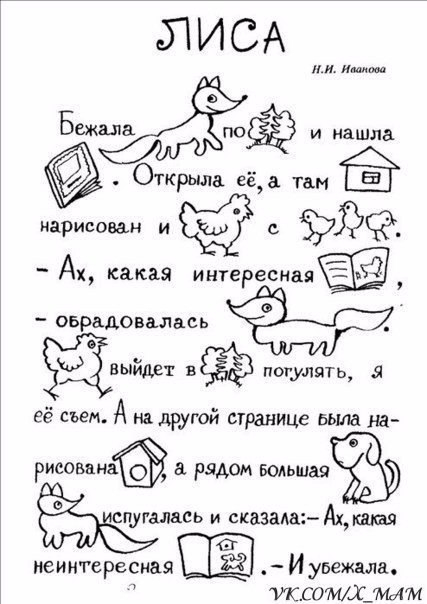 ЛИСА
Н.И. Иванова
Бежала по и нашла
. Открыла её, а там
нарисован и с .
- Ах, какая интересная ,
- обрадовалась .
выйдет в погулять, я
её съем. А на другой странице была на-
рисована , а рядом большая .
испугалась и сказала:- Ах, какая
неинтересная .-И убежала.
VK.COM/X_MAM